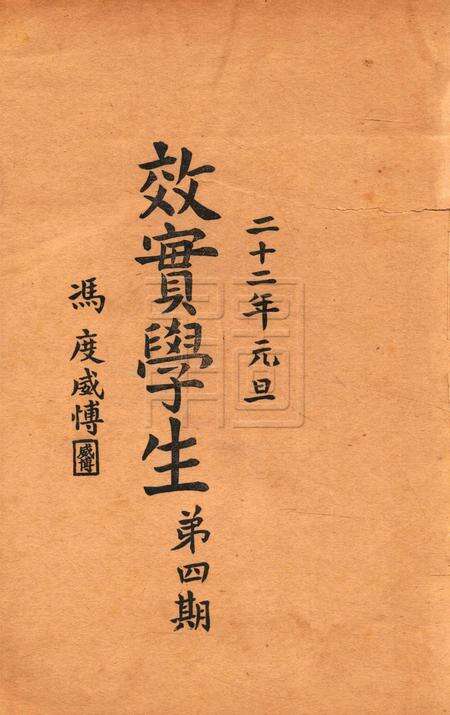 二十二年元旦
效實學生
第四期
馮度威博
威博